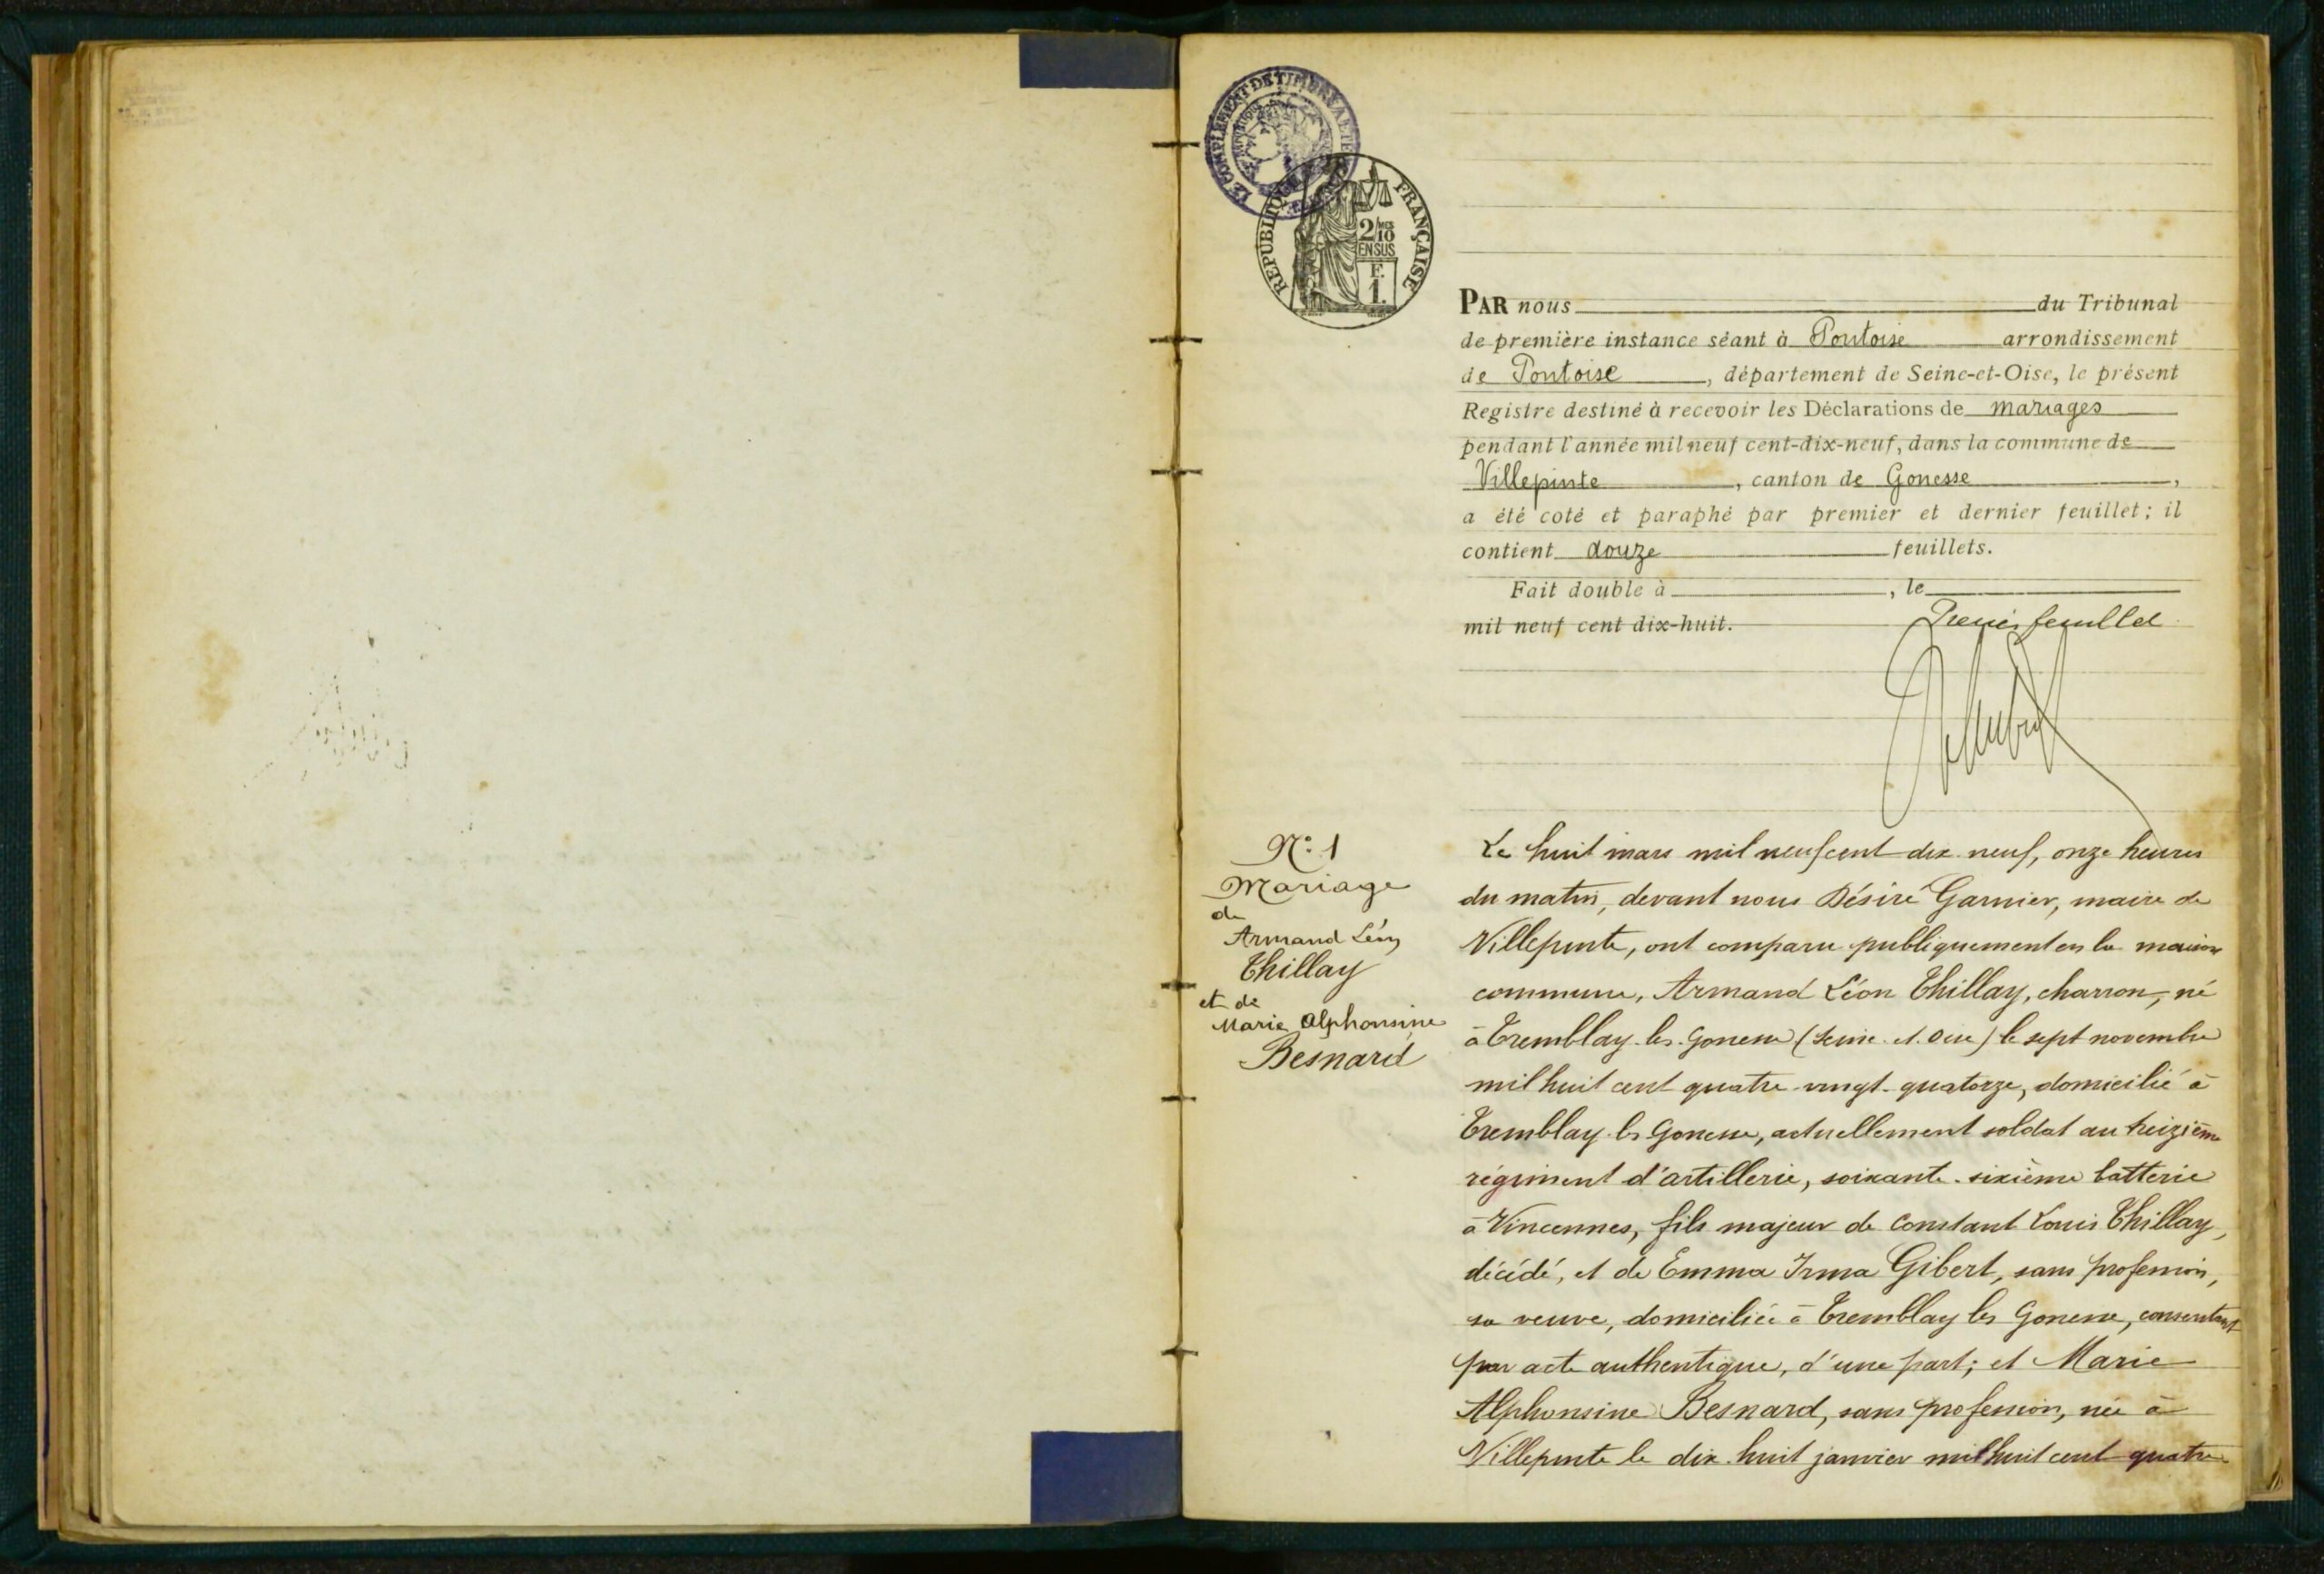 LE COMPLÉMENT DE TIMBRE A ÉTÉ
RÉPUBLIQUE FRANÇAISE
2/10
EN SUS
F.
1.
PAR nous du Tribunal
de première instance séant à Pontoise arrondissement
de Pontoise, département de Seine-et-Oise, le présent
Registre destiné à recevoir les Déclarations de mariages
pendant l'année mil neuf cent-dix-neuf, dans la commune de
Villepinte, canton de Gonesse,
a été coté et paraphé par premier et dernier feuillet; il
contient douze feuillets.
Fait double à , le
mil neuf cent dix-huit.
Premier feuillet
N° 1
Mariage
de
Armand Léon
Thillay
et de
Marie Alphonsine
Besnard
Le huit mars mil neuf cent dix neuf, onze heures
du matin, devant nous Désiré Garnier, maire de
Villepinte, ont comparu publiquement en la maison
commune, Armand Léon Thillay, charron, né
à Tremblay-les-Gonesse (Seine et Oise) le sept novembre
mil huit cent quatre-vingt-quatorze, domicilié à
Tremblay les Gonesse, actuellement soldat au treizième
régiment d'artillerie, soixante-sixième batterie
à Vincennes, fils majeur de Constant Louis Thillay,
décédé, et de Emma Irma Gibert, sans profession,
sa veuve, domiciliée à Tremblay les Gonesse, consentant
par acte authentique, d'une part; et Marie
Alphonsine Besnard, sans profession, née à
Villepinte le dix-huit janvier mil huit cent quatre